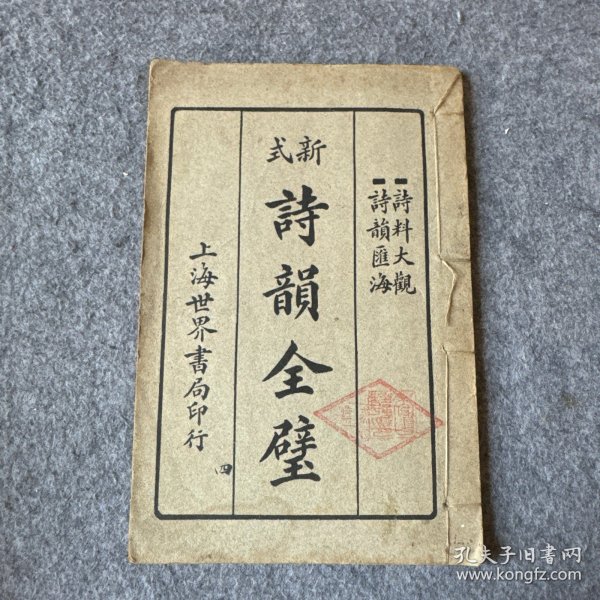 詩料大觀
詩韻匯海
新式
詩韻全璧
上海世界書局印行
四
孔夫子旧书网
www.kongfz.com